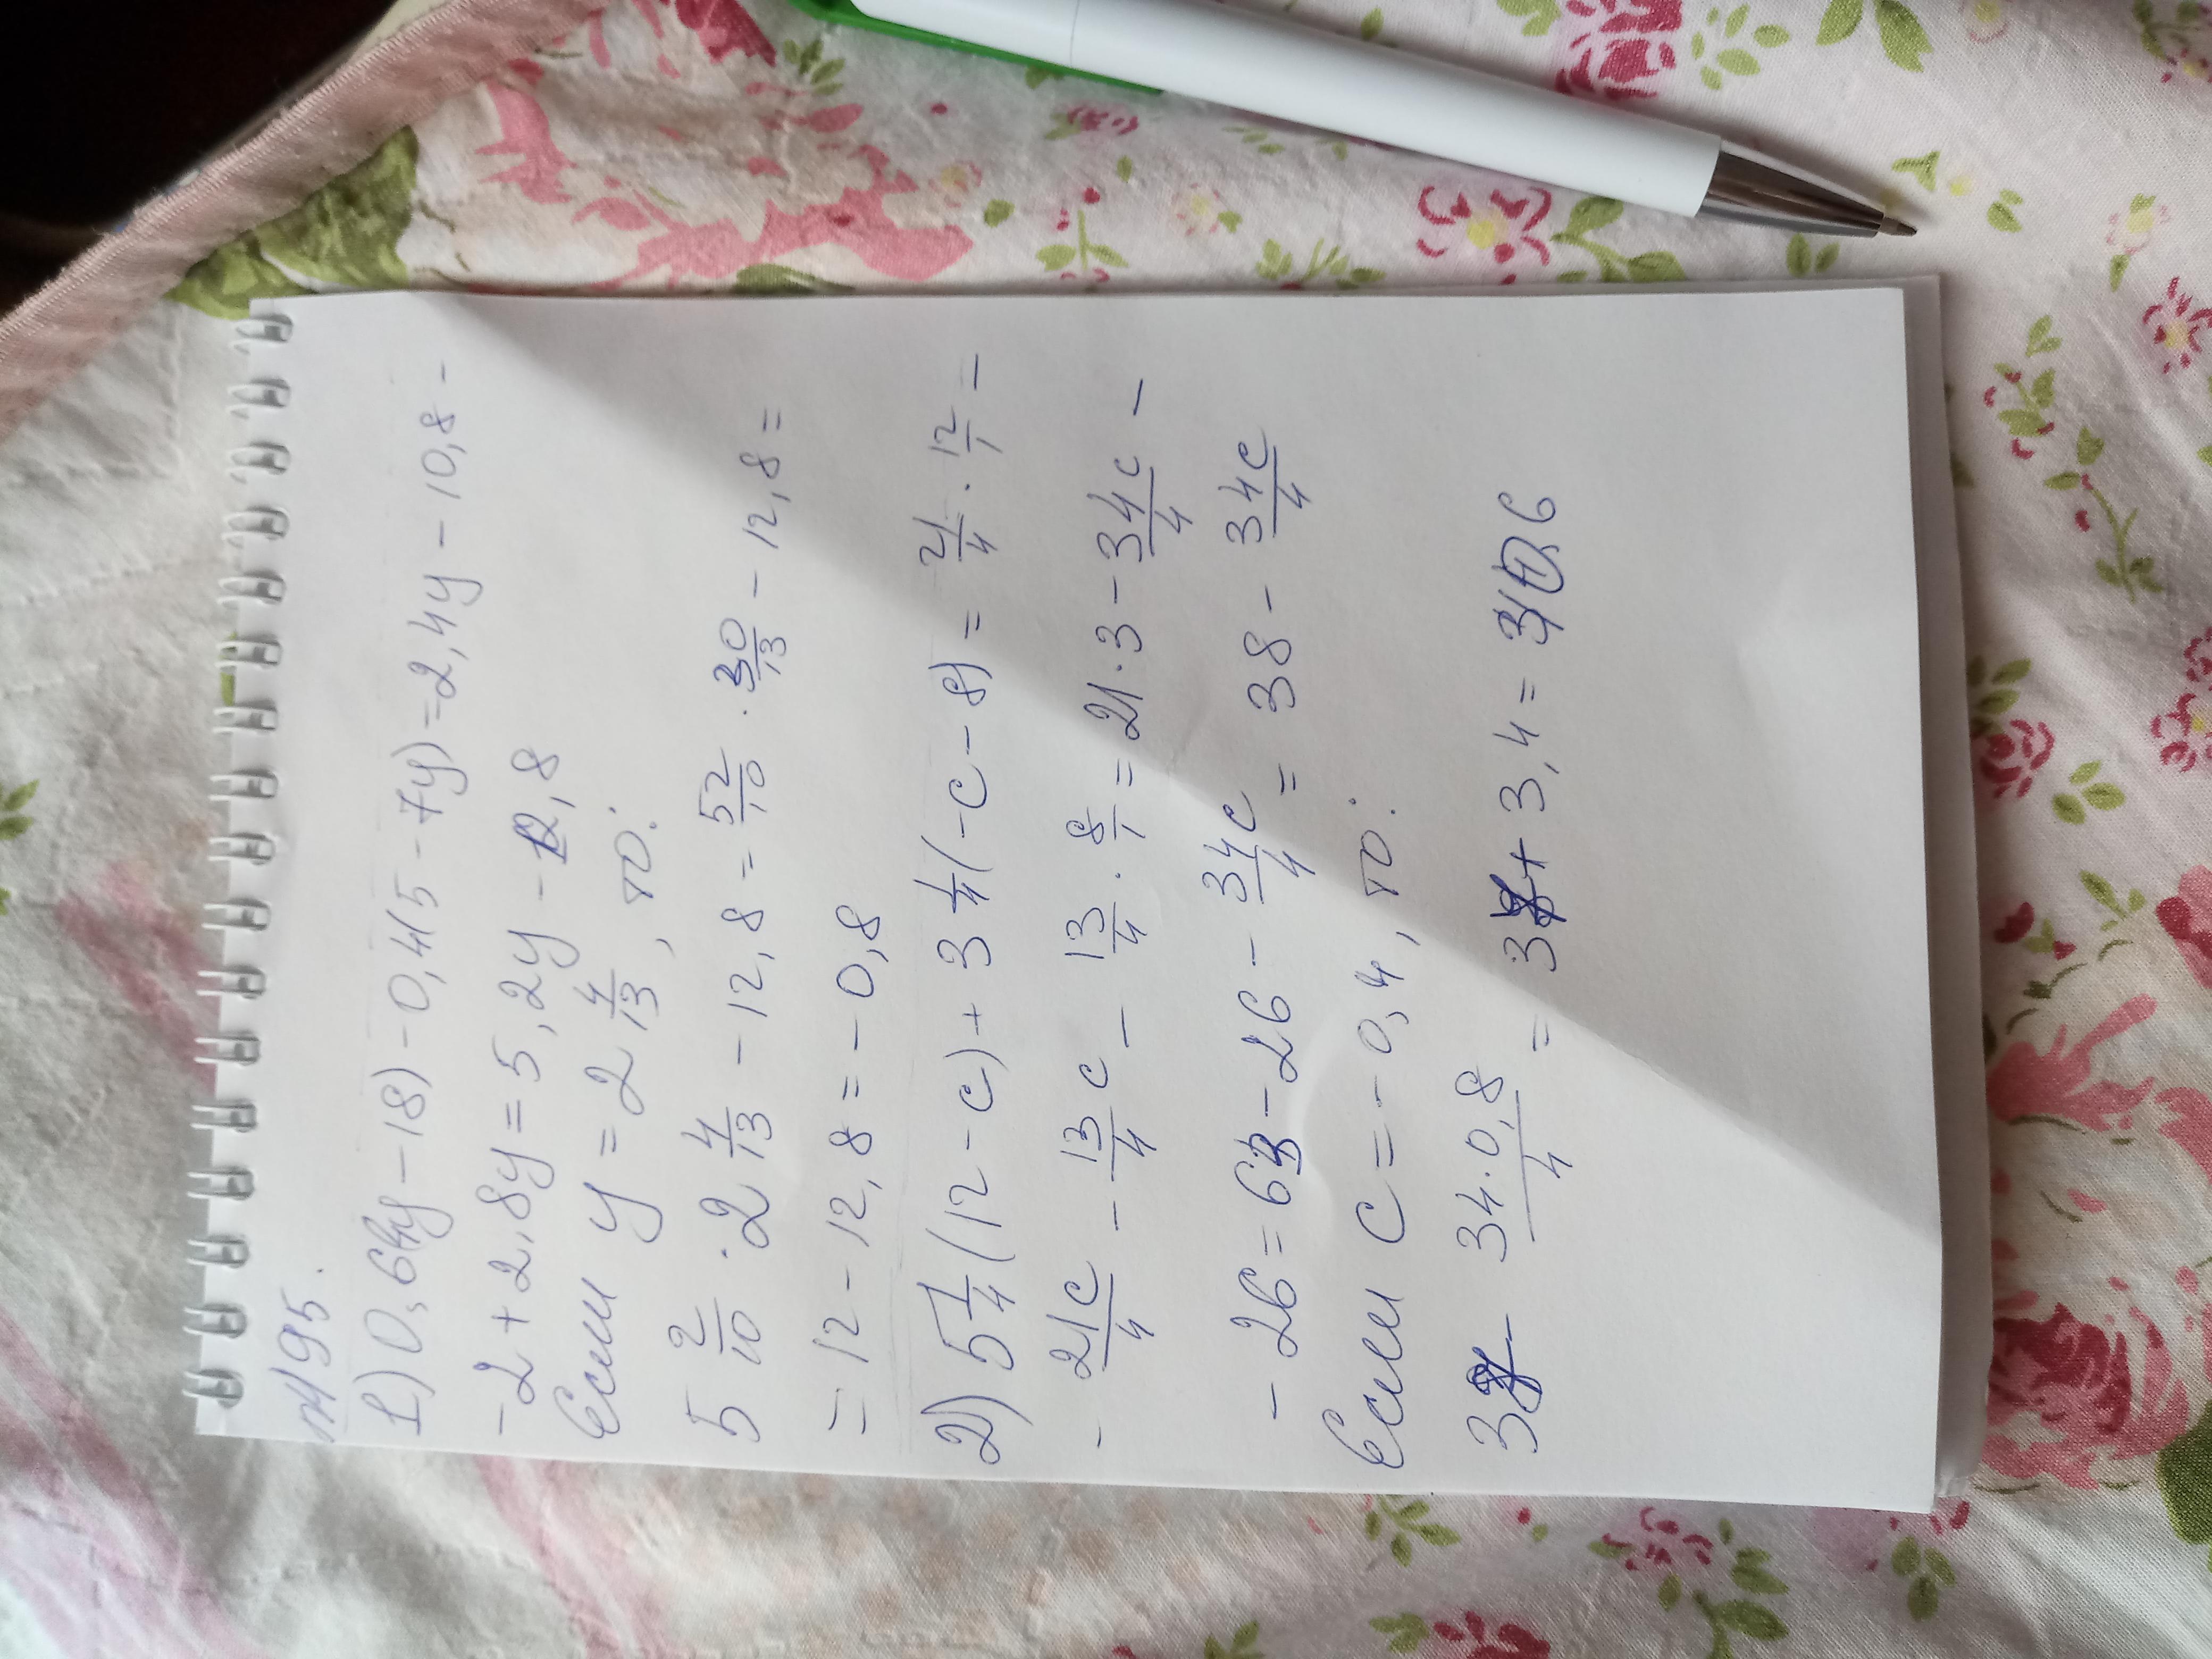 №195.
1) 0,6(4y-18)-0,4(5-7y)=2,4y-10,8-
-2+2,8y=5,2y-12,8
Если y=2 4/13, то:
5 2/10 · 2 4/13 - 12,8 = 52/10 · 30/13 - 12,8 =
= 12 - 12,8 = -0,8
2) 5 1/4 (12-c)+3 1/4 (-c-8) = 21/4 · 12/1 -
- 21c/4 - 13/4 c - 13/4 · 8/1 = 21·3 - 34c/4 -
- 26 = 63 - 26 - 34c/4 = 38 - 34c/4
Если c=-0,4, то:
34·0,8/4 = + 3,4 =